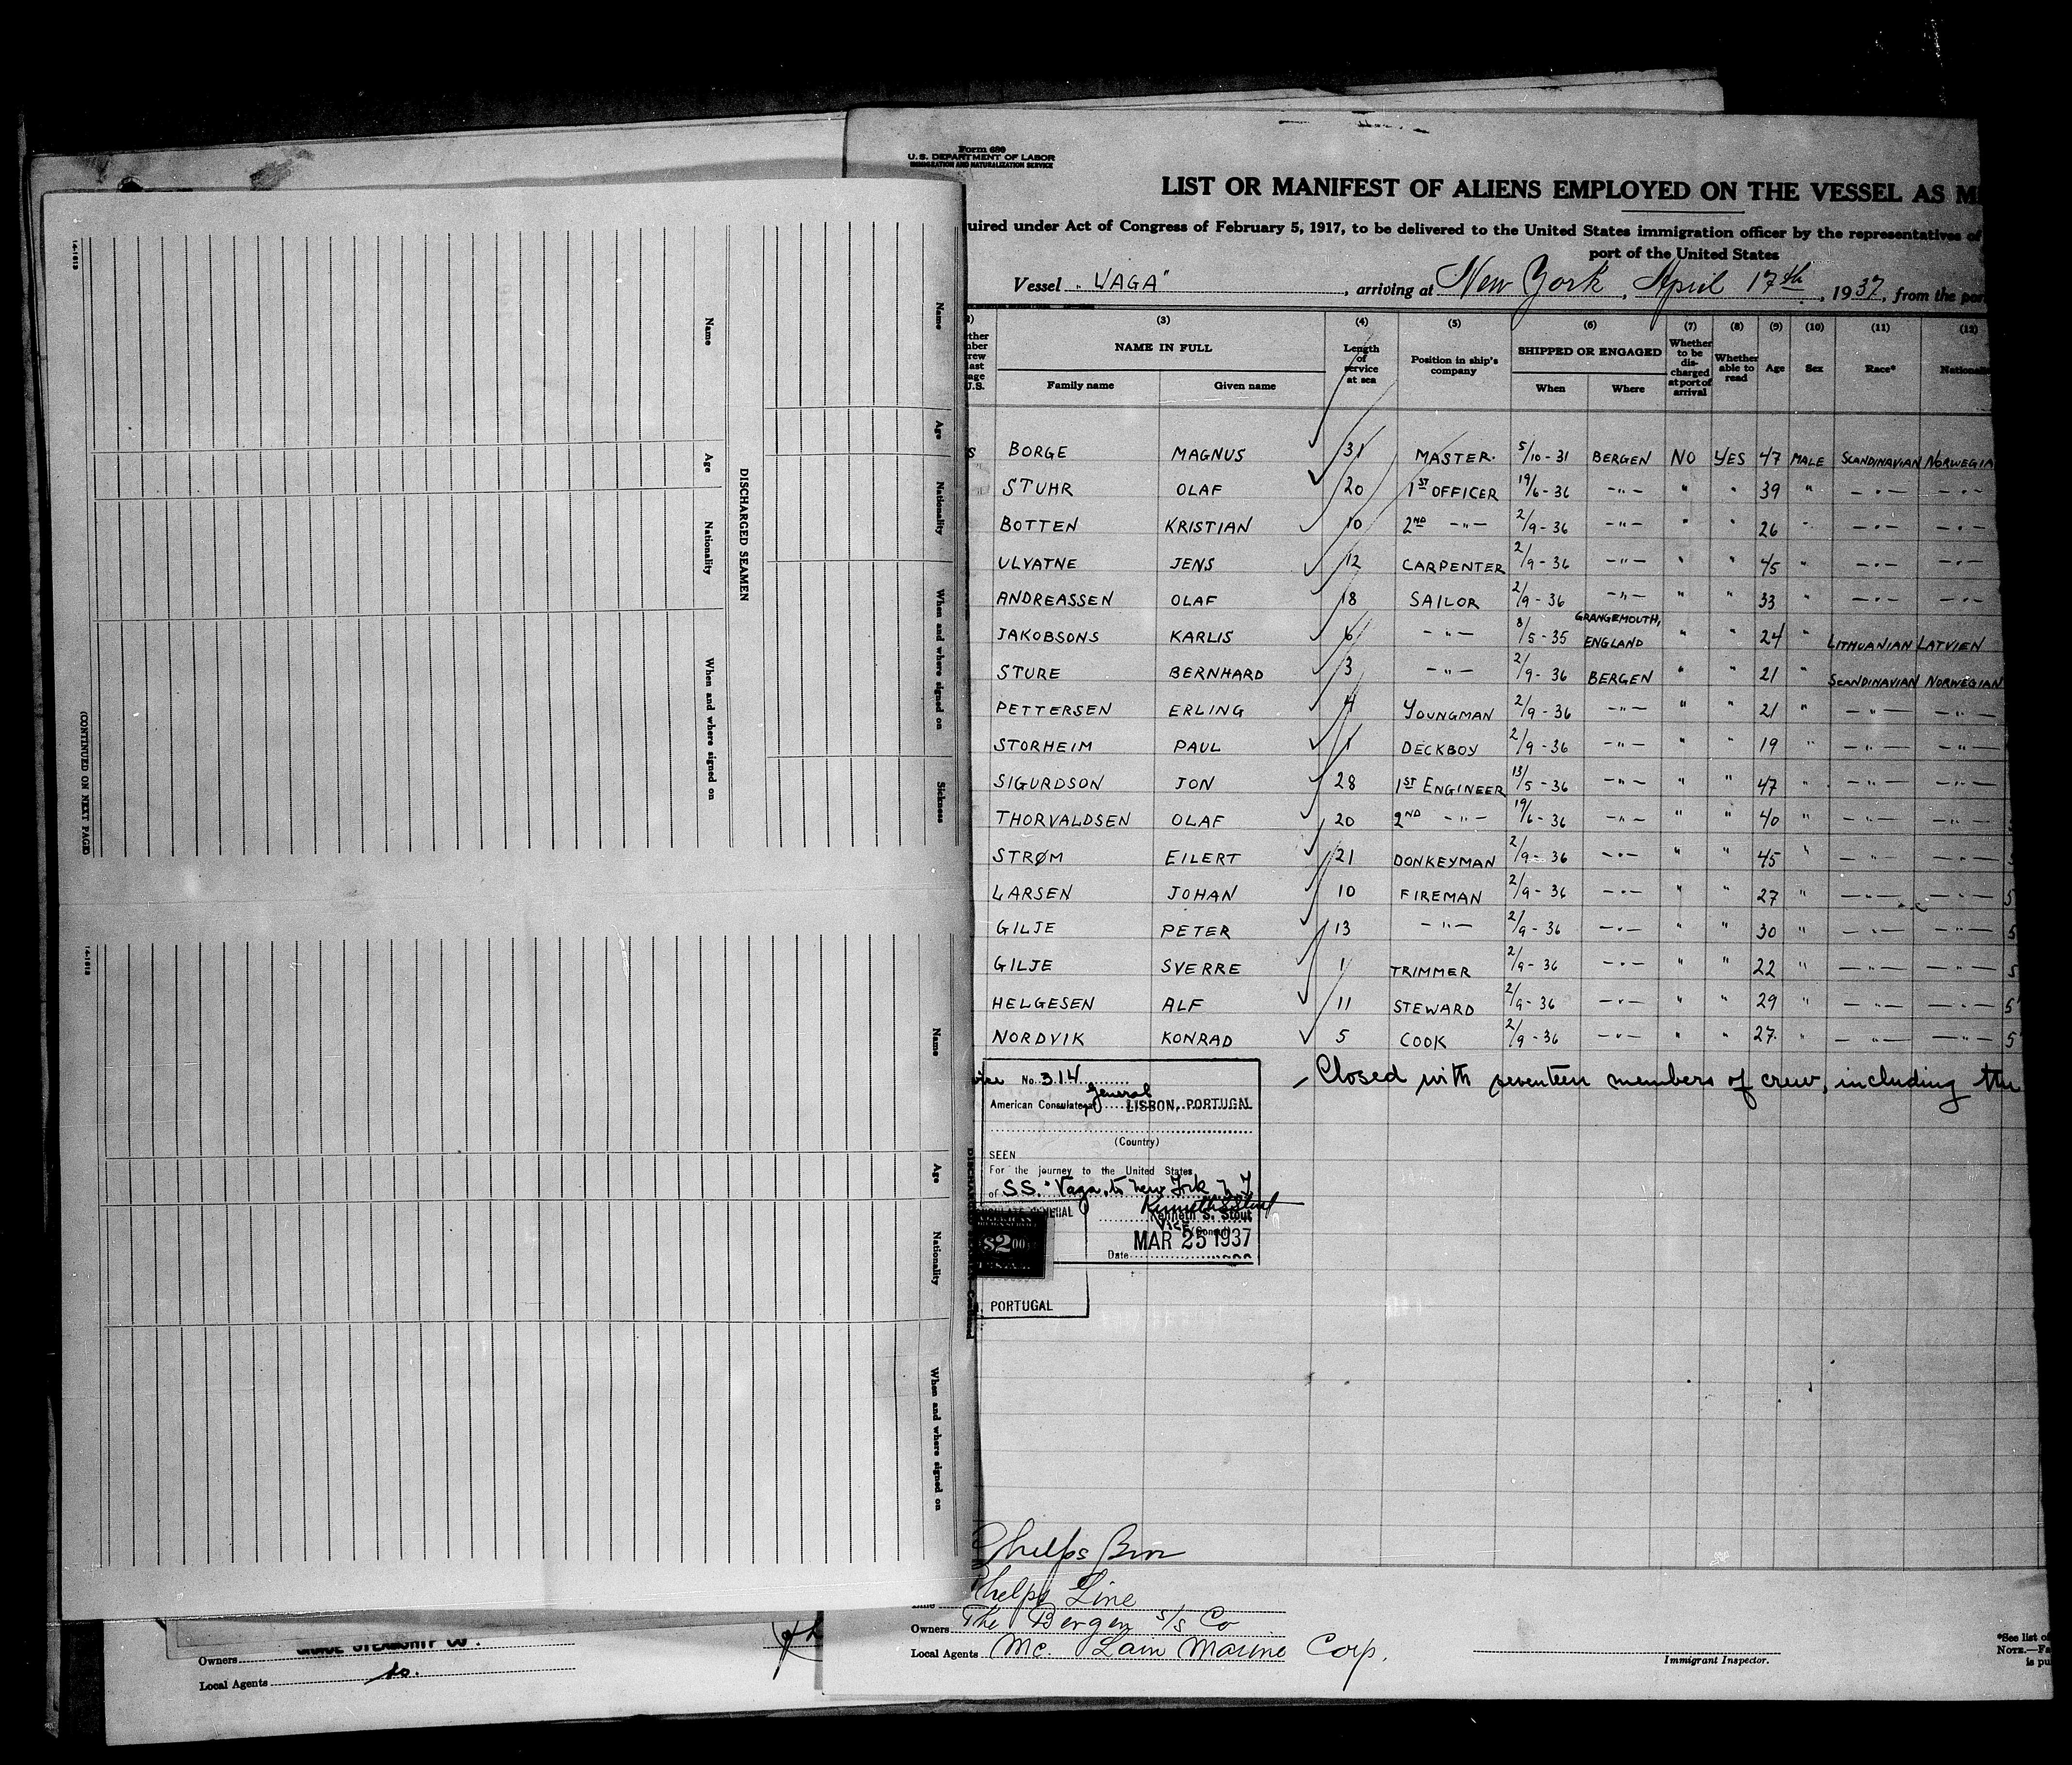 Form 680
U.S. DEPARTMENT OF LABOR
IMMIGRATION AND NATURALIZATION SERVICE
LIST OR MANIFEST OF ALIENS EMPLOYED ON THE VESSEL AS M
uired under Act of Congress of February 5, 1917, to be delivered to the United States immigration officer by the representatives of
port of the United States
Vessel "VAGA", arriving at New York, April 17th, 1937, from the por
(3) (4) (5) (6) (7) (8) (9) (10) (11) (12)
NAME IN FULL Length of service at sea Position in ship's company SHIPPED OR ENGAGED Whether to be discharged at port of arrival Whether able to read Age Sex Race* Nationali
Family name Given name When Where
S BORGE MAGNUS 31 MASTER. 5/10-31 BERGEN NO YES 47 MALE SCANDINAVIAN NORWEGIA
STUHR OLAF 20 1ST OFFICER 19/6-36 -"- " " 39 " -"- -"-
BOTTEN KRISTIAN 10 2ND -"- 2/9-36 -"- " " 26 " -"- -"-
ULVATNE JENS 12 CARPENTER 2/9-36 -"- " " 45 " -"- -"-
ANDREASSEN OLAF 18 SAILOR 2/9-36 -"- " " 33 " -"- -"-
JAKOBSONS KARLIS 6 -"- 8/5-35 GRANGEMOUTH, ENGLAND " " 24 " LITHUANIAN LATVIEN
STURE BERNHARD 3 -"- 2/9-36 BERGEN " " 21 " SCANDINAVIAN NORWEGIAN
PETTERSEN ERLING 4 YOUNGMAN 2/9-36 -"- " " 21 " -"- -"-
STORHEIM PAUL 1 DECKBOY 2/9-36 -"- " " 19 " -"- -"-
SIGURDSON JON 28 1ST ENGINEER 13/5-36 -"- " " 47 " -"- -"-
THORVALDSEN OLAF 20 2ND -"- 19/6-36 -"- " " 40 " -"- -"-
STRØM EILERT 21 DONKEYMAN 2/9-36 -"- " " 45 " -"- -"-
LARSEN JOHAN 10 FIREMAN 2/9-36 -"- " " 27 " -"- -"- 5
GILJE PETER 13 -"- 2/9-36 -"- " " 30 " -"- -"- 5
GILJE SVERRE 1 TRIMMER 2/9-36 -"- " " 22 " -"- -"- 5
HELGESEN ALF 11 STEWARD 2/9-36 -"- " " 29 " -"- -"- 5
NORDVIK KONRAD 5 COOK 2/9-36 -"- " " 27 " -"- -"- 5
Closed with seventeen members of crew, including the
No. 314
American Consulate General LISBON, PORTUGAL
(Country)
SEEN
For the journey to the United States
of SS. "Vaga" to New York N.Y
Kenneth S. Stout
Vice (Consul)
$2.00
Date MAR 25 1937
PORTUGAL
Phelps Bros
Phelps Line
Owners The Bergen S/S Co
Local Agents Mc. Lain Marine Corp.
Immigrant Inspector.
*See list of
NOTE.—Fa
is pu
Name Age Nationality When and where signed on Sickness
DISCHARGED SEAMEN
Name Age Nationality When and where signed on
(CONTINUED ON NEXT PAGE)
14-1618
Name Age Nationality When and where signed on
14-1618
Owners GRACE STEAMSHIP CO.
Local Agents do.